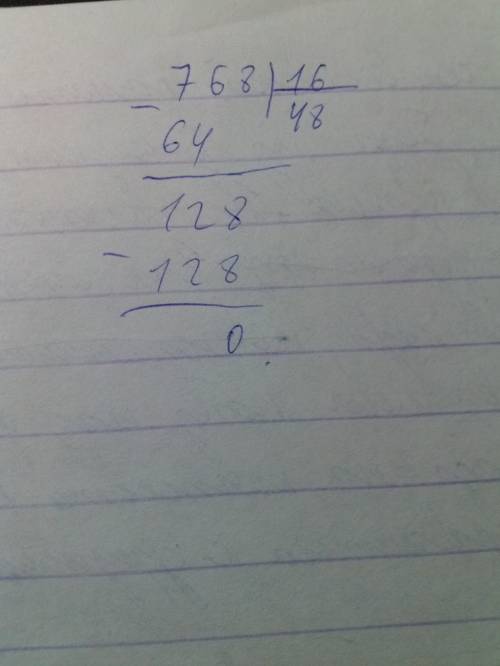 768 | 16
- 64 48
128
- 128
0